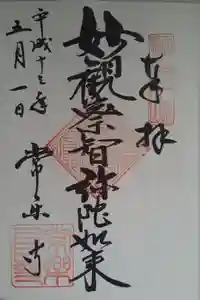 奉拝
妙観察智弥陀如来
平成十三年
五月一日
常楽寺